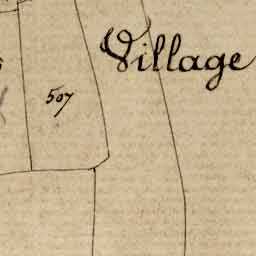 Village
507